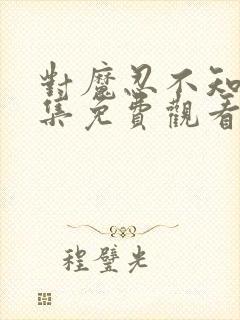 對魔忍不知
集免費觀看
程璧光